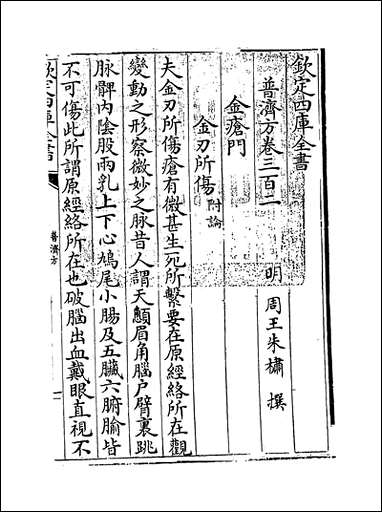 欽定四庫全書
普濟方卷三百二
明 周王朱橚 撰
金瘡門
金刃所傷附論
夫金刃所傷瘡有微甚生死所繫要在原經絡所在觀
變動之形察微妙之脉昔人謂天顖眉角腦户臂裏跳
脉髀内陰股兩乳上下心鳩尾小腸及五臟六腑腧皆
不可傷此所謂原經絡所在也破腦出血戴眼直視不
欽定四庫全書
普濟方
一